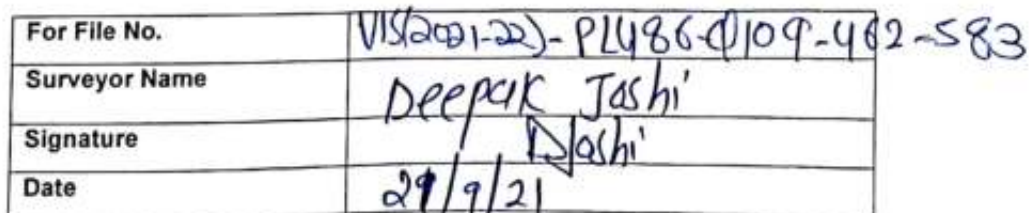 For File No. VIS(2021-22)-PL486-Q109-462-583
Surveyor Name Deepak Joshi
Signature DJoshi
Date 29/9/21